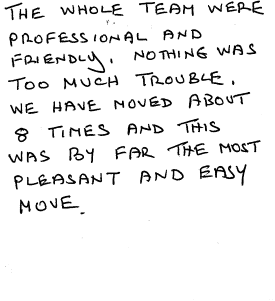 THE WHOLE TEAM WERE
PROFESSIONAL AND
FRIENDLY. NOTHING WAS
TOO MUCH TROUBLE.
WE HAVE MOVED ABOUT
8 TIMES AND THIS
WAS BY FAR THE MOST
PLEASANT AND EASY
MOVE.